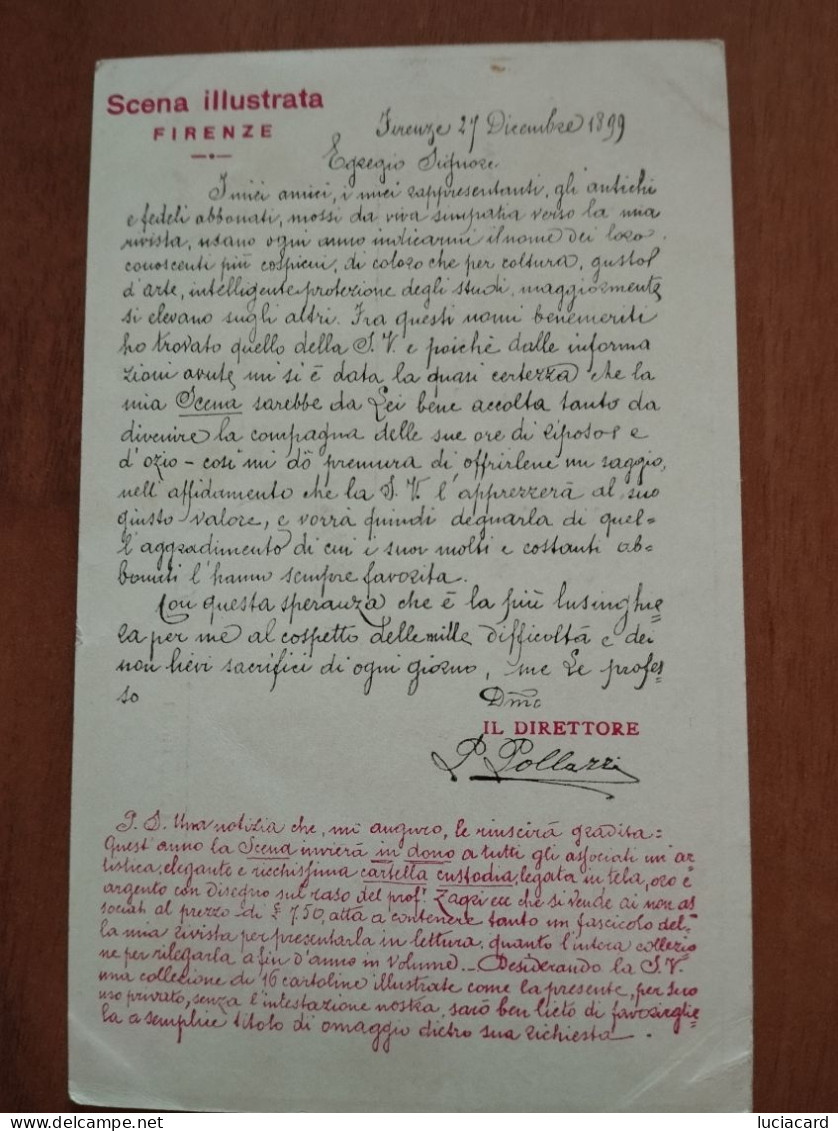 Scena illustrata
FIRENZE
Firenze 27 Dicembre 1899
Egregio Signore.
I miei amici, i miei rappresentanti, gli antichi
e fedeli abbonati, mossi da viva simpatia verso la mia
rivista, usano ogni anno indicarmi il nome dei loro
conoscenti più cospicui, di coloro che per coltura, gusto
d'arte, intelligente protezione degli studi, maggiormente
si elevano sugli altri. Fra questi nomi benemeriti
ho trovato quello della S. V. e poichè dalle informa
zioni avute mi si è data la quasi certezza che la
mia Scena sarebbe da Lei bene accolta tanto da
divenire la compagna delle sue ore di riposo e
d'ozio - così mi dò premura di offrirlene un saggio,
nell'affidamento che la S. V. l'apprezzerà al suo
giusto valore, e vorrà quindi degnarla di quel=
l'aggradimento di cui i suoi molti e costanti ab=
bonati l'hanno sempre favorita.
Con questa speranza che è la più lusinghie=
ra per me al cospetto delle mille difficoltà e dei
non lievi sacrifici di ogni giorno, me Le profes=
so
Dmo
IL DIRETTORE
P. Pollazzi
P. S. Una notizia che, mi auguro, le riuscirà gradita=
Quest'anno la Scena invierà in dono a tutti gli associati un'ar
tistica, elegante e ricchissima cartella custodia, legata in tela, oro e
argento con disegno sul raso del prof. ecc che si vende ai non as
sociati al prezzo di £ 7.50, atta a contenere tanto un fascicolo del=
la mia rivista per presentarla in lettura, quanto l'intera collezio
ne per rilegarla a fin d'anno in volume. - Desiderando la S. V.
una collezione di 16 cartoline illustrate come la presente, per suo
uso privato, senza l'intestazione nostra, sarò ben lieto di favorirglie=
la a semplice titolo di omaggio dietro sua richiesta.
luciacard